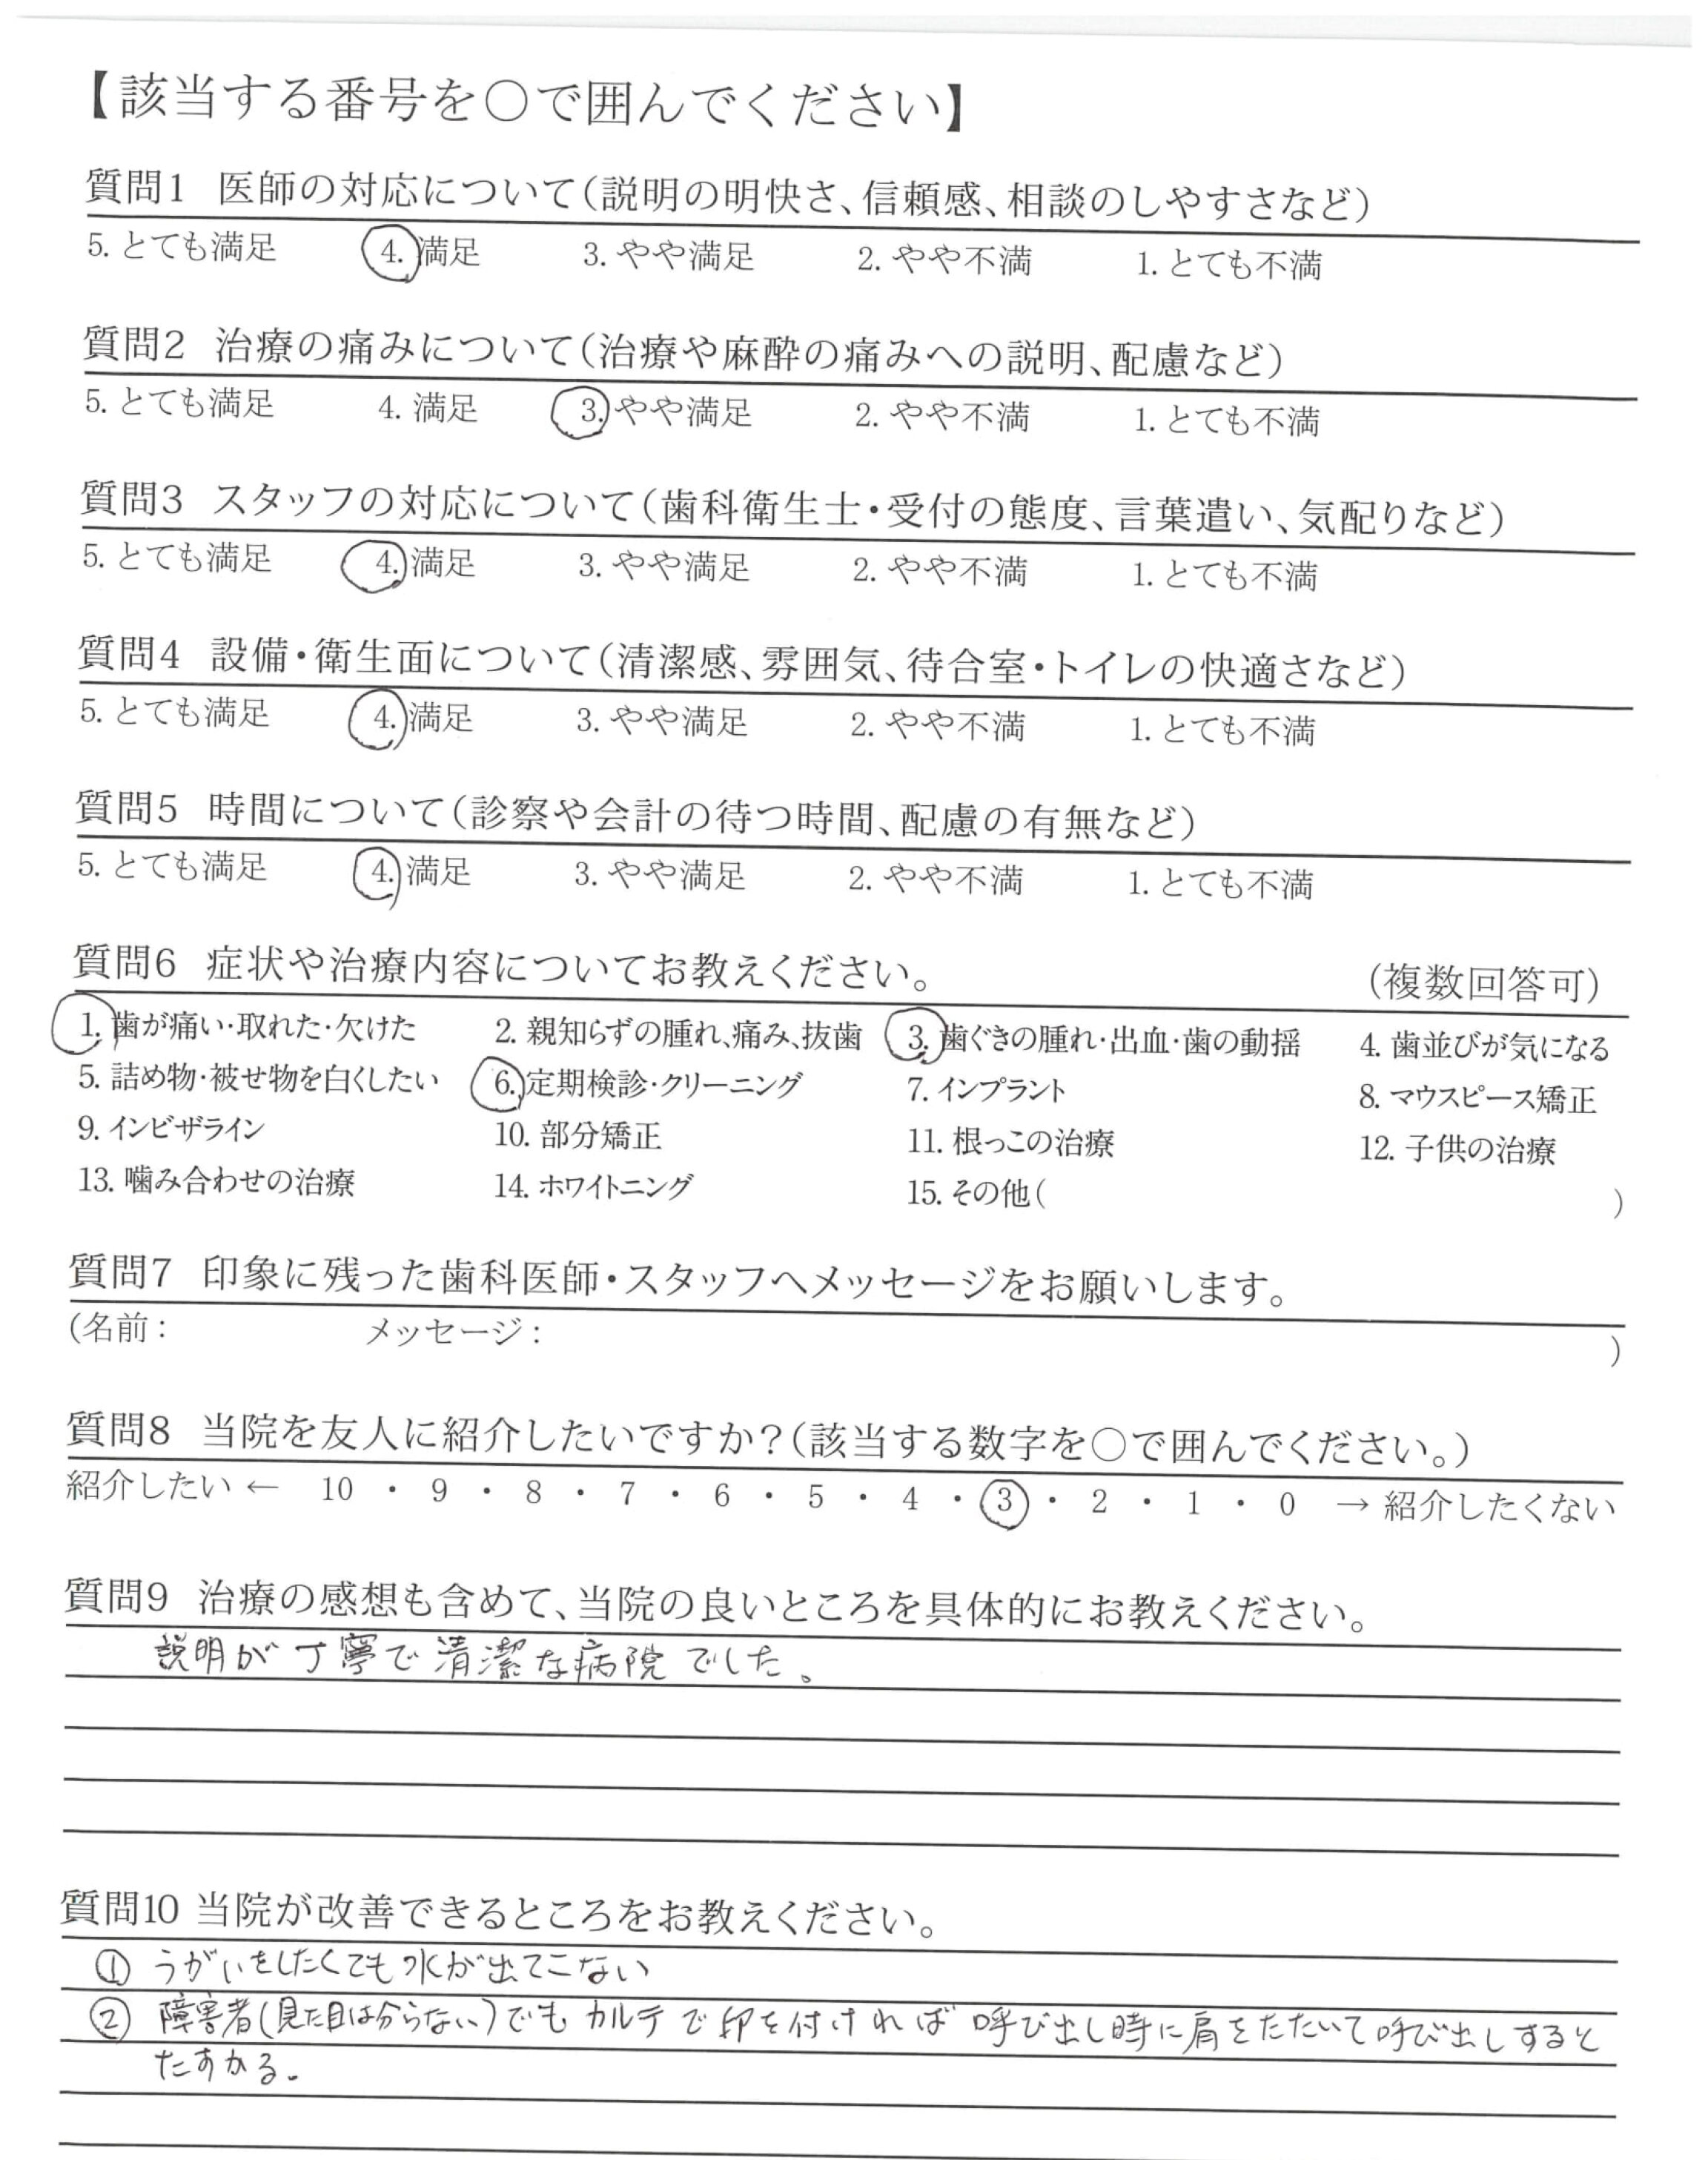 【該当する番号を○で囲んでください】
質問1 医師の対応について(説明の明快さ、信頼感、相談のしやすさなど)
5. とても満足 4. 満足 3. やや満足 2. やや不満 1. とても不満
質問2 治療の痛みについて(治療や麻酔の痛みへの説明、配慮など)
5. とても満足 4. 満足 3. やや満足 2. やや不満 1. とても不満
質問3 スタッフの対応について(歯科衛生士・受付の態度、言葉遣い、気配りなど)
5. とても満足 4. 満足 3. やや満足 2. やや不満 1. とても不満
質問4 設備・衛生面について(清潔感、雰囲気、待合室・トイレの快適さなど)
5. とても満足 4. 満足 3. やや満足 2. やや不満 1. とても不満
質問5 時間について(診察や会計の待つ時間、配慮の有無など)
5. とても満足 4. 満足 3. やや満足 2. やや不満 1. とても不満
質問6 症状や治療内容についてお教えください。 (複数回答可)
1. 歯が痛い・取れた・欠けた 2. 親知らずの腫れ、痛み、抜歯 3. 歯ぐきの腫れ・出血・歯の動揺 4. 歯並びが気になる
5. 詰め物・被せ物を白くしたい 6. 定期検診・クリーニング 7. インプラント 8. マウスピース矯正
9. インビザライン 10. 部分矯正 11. 根っこの治療 12. 子供の治療
13. 噛み合わせの治療 14. ホワイトニング 15. その他( )
質問7 印象に残った歯科医師・スタッフへメッセージをお願いします。
(名前: メッセージ: )
質問8 当院を友人に紹介したいですか?(該当する数字を○で囲んでください。)
紹介したい ← 10 ・ 9 ・ 8 ・ 7 ・ 6 ・ 5 ・ 4 ・ 3 ・ 2 ・ 1 ・ 0 → 紹介したくない
質問9 治療の感想も含めて、当院の良いところを具体的にお教えください。
説明が丁寧で清潔な病院でした。
質問10 当院が改善できるところをお教えください。
① うがいをしたくても水が出てこない
② 障害者(見た目は分らない)でもカルテで印を付ければ呼び出し時に肩をたたいて呼び出しすると
たすかる。